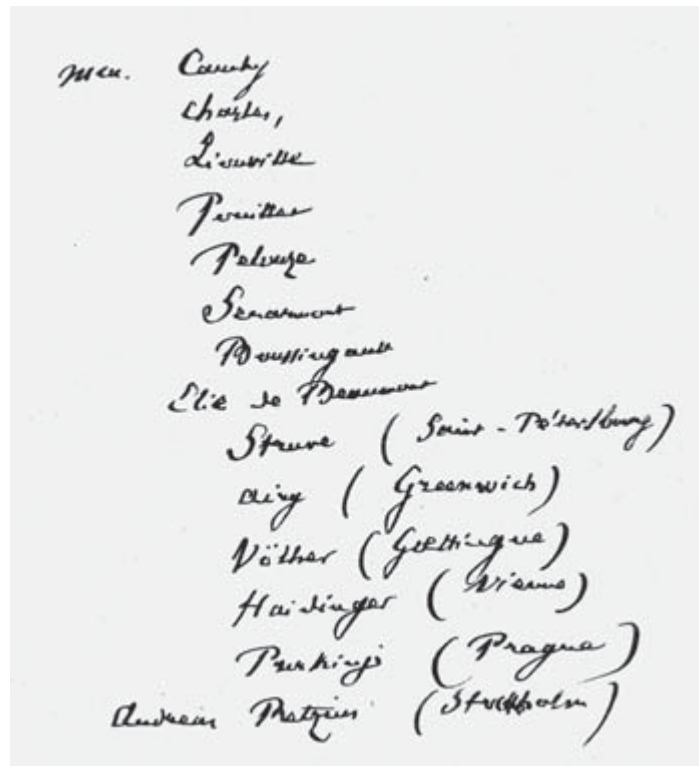 MM. Cauchy
Chasles,
Liouville
Pouillet
Pelouze
Senarmont
Boussingault
Elie de Beaumont
Struve (Saint-Pétersbourg)
Airy (Greenwich)
Völher (Gœttingue)
Haidinger (Vienne)
Purkinje (Prague)
Andreas Retzius (Stockholm)